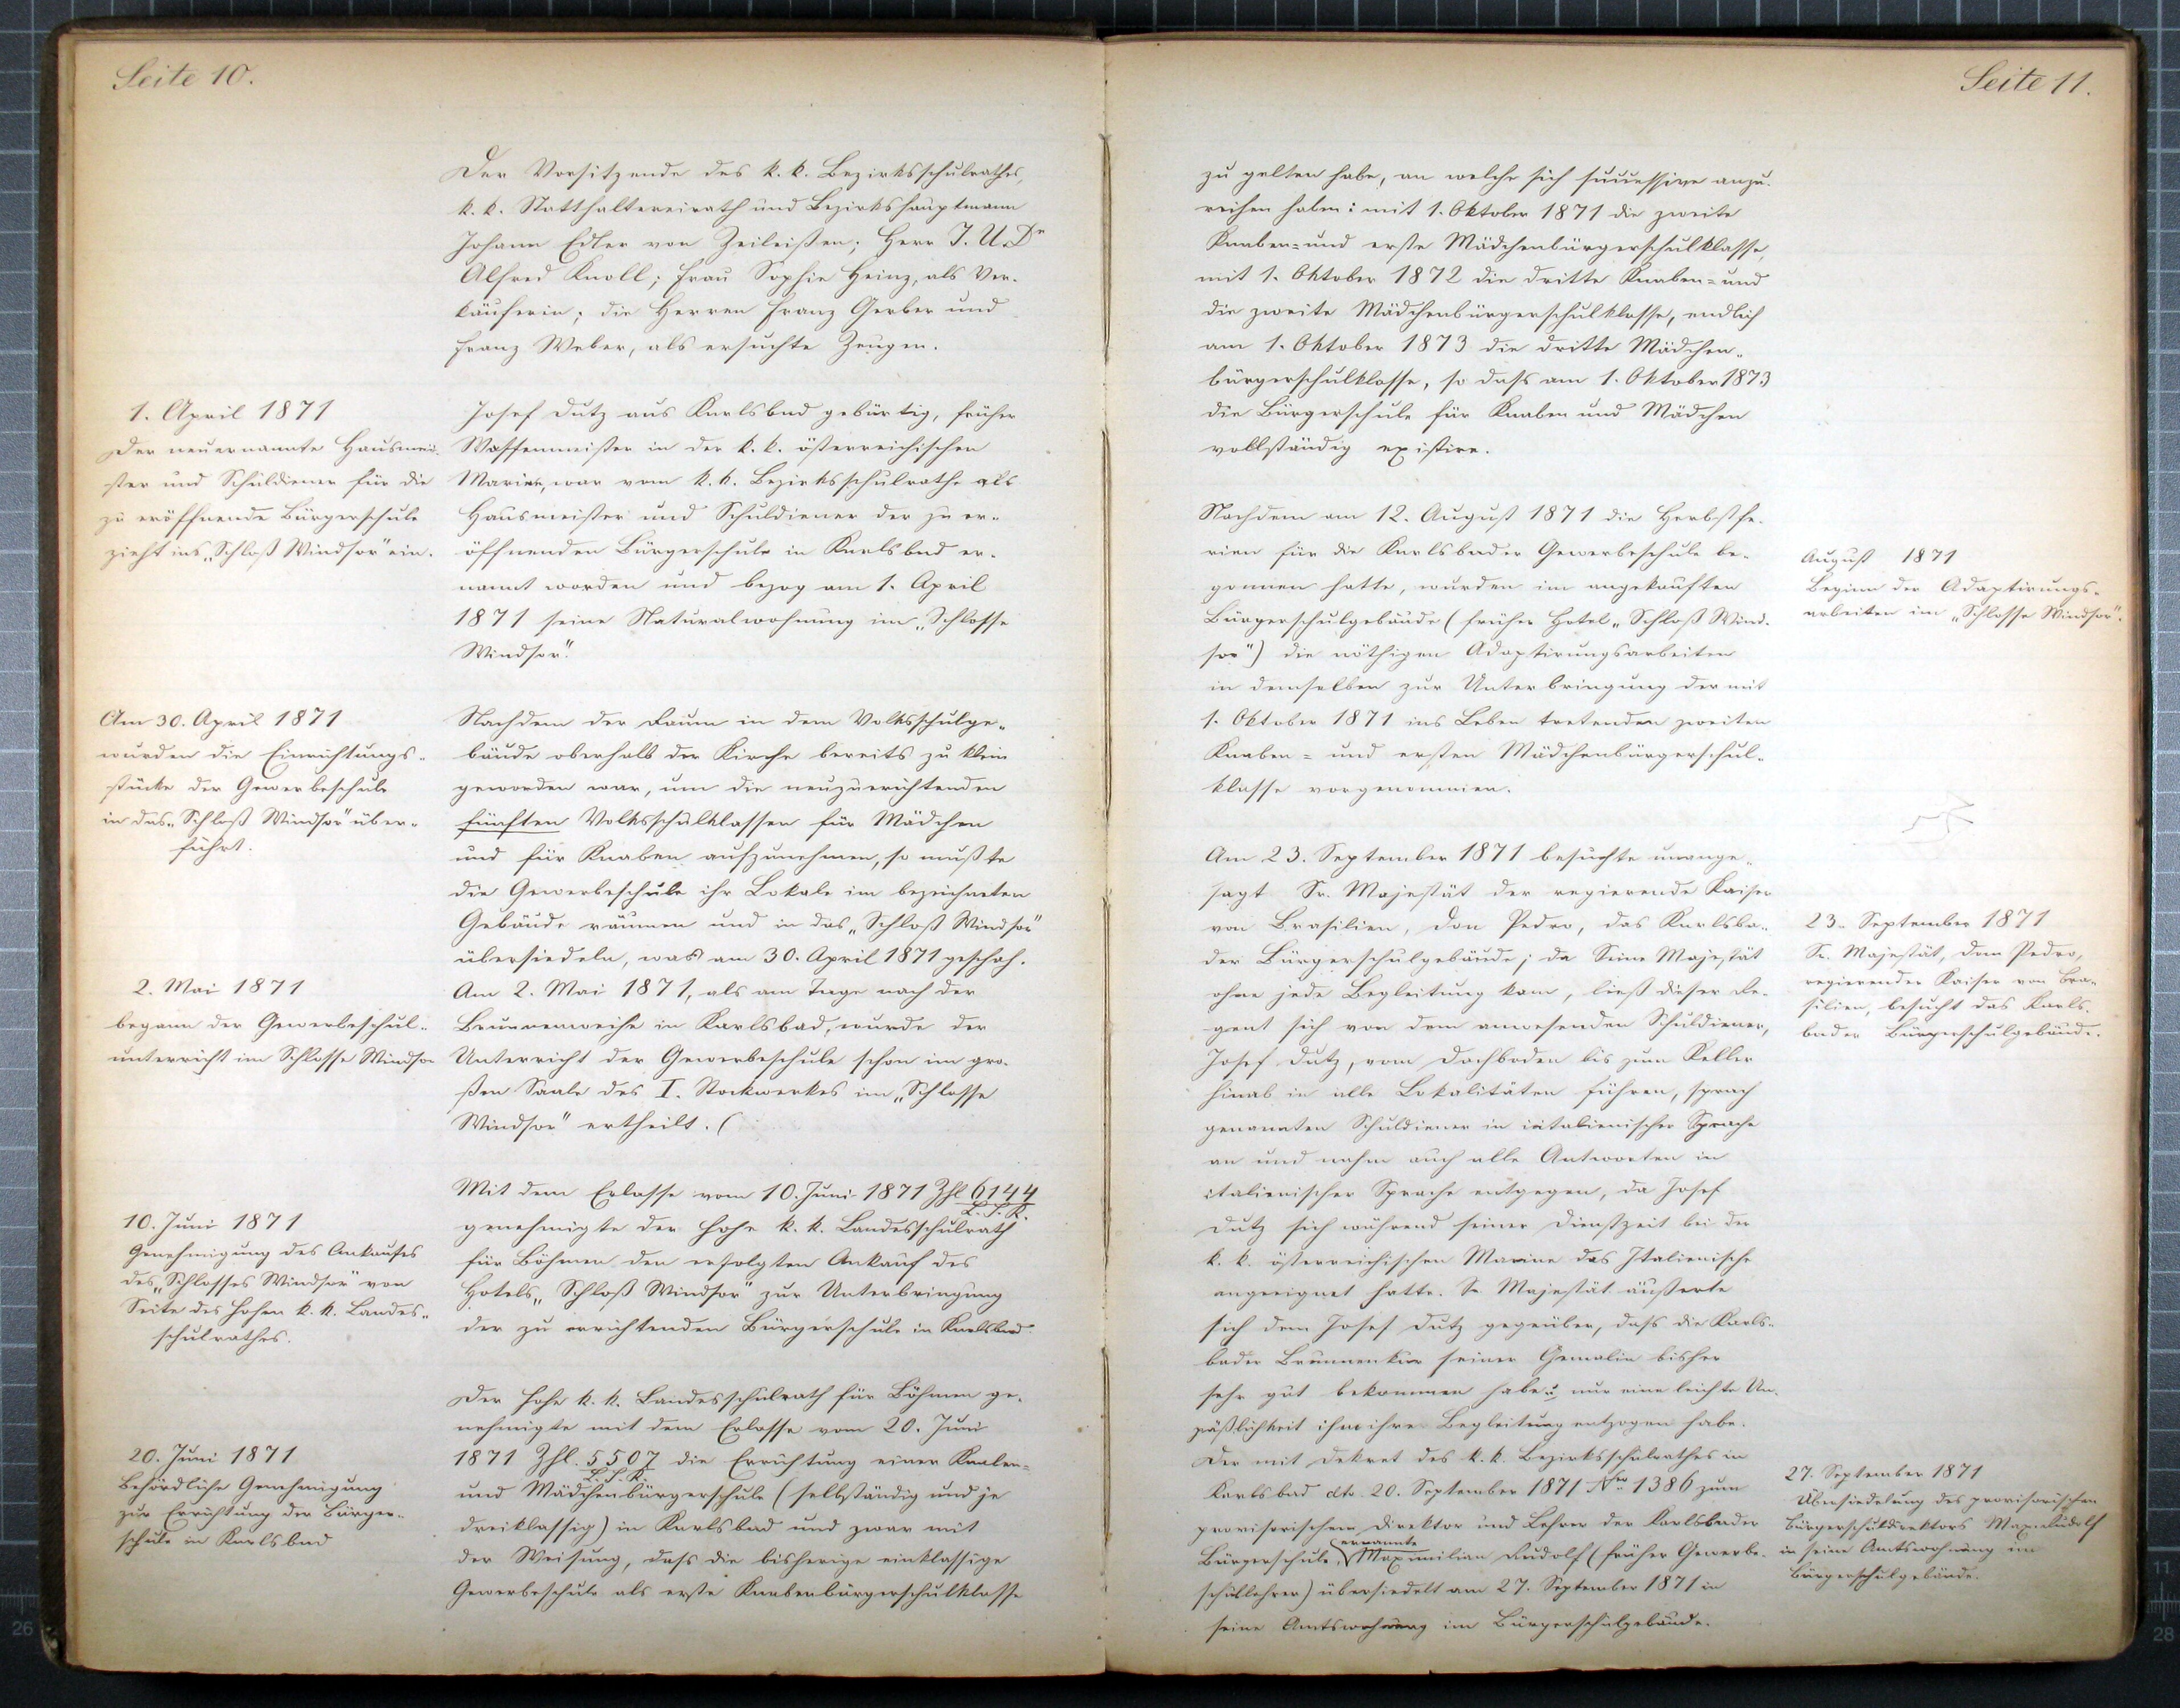 Seite 10.
Der Vorsitzende des k. k. Bezirksschulrathes,
k. k. Statthaltereirath und Bezirkshauptmann
Johann Edler von Zeileißen; Herr J. U. Dr
Alfred Knoll; Frau Sophie Heinz, als Ver-
käuferin; die Herren Franz Gerber und
Franz Weber, als ersuchte Zeugen.
1. April 1871
Der neuernannte Hausmei-
ster und Schuldiener für die
zu eröffnende Bürgerschule
zieht ins „Schloß Windsor" ein.
Josef Dutz aus Karlsbad gebürtig, früher
Waffenmeister in der k. k. österreichischen
Marine, war vom k. k. Bezirksschulrathe als
Hausmeister und Schuldiener der zu er-
öffnenden Bürgerschule in Karlsbad er-
nannt worden und bezog am 1. April
1871 seine Naturalwohnung im „Schlosse
Windsor".
Am 30. April 1871
wurden die Einrichtungs-
stücke der Gewerbeschule
in das „Schloß Windsor" über-
führt.
Nachdem der Raum in dem Volksschulge-
bäude oberhalb der Kirche bereits zu klein
geworden war, um die neuzuerrichtenden
fünften Volksschulklassen für Mädchen
und für Knaben aufzunehmen, so mußte
die Gewerbeschule ihr Lokale im bezeichneten
Gebäude räumen und in das „Schloß Windsor"
übersiedeln, was am 30. April 1871 geschah.
2. Mai 1871
begann der Gewerbeschul-
unterricht im Schlosse Windsor
Am 2. Mai 1871, als am Tage nach der
Brunnenweihe in Karlsbad, wurde der
Unterricht der Gewerbeschule schon im gro-
ßen Saale des I. Stockwerkes im „Schlosse
Windsor" ertheilt. (
10. Juni 1871
Genehmigung des Ankaufes
des „Schlosses Windsor" von
Seite des hohen k. k. Landes-
schulrathes.
Mit dem Erlasse vom 10. Juni 1871 Zhl 6144
L. S. R.
genehmigte der hohe k. k. Landesschulrath
für Böhmen den erfolgten Ankauf des
Hotels „Schloß Windsor" zur Unterbringung
der zu errichtenden Bürgerschule in Karlsbad.
20. Juni 1871
Behördliche Genehmigung
zur Errichtung der Bürger-
schule in Karlsbad
Der hohe k. k. Landesschulrath für Böhmen ge-
nehmigte mit dem Erlasse vom 20. Juni
1871 Zhl. 5507 die Errichtung einer Knaben-
L. S. R.
und Mädchenbürgerschule (selbständig und je
dreiklassig) in Karlsbad und zwar mit
der Weisung, dass die bisherige einklassige
Gewerbeschule als erste Knabenbürgerschulklasse
Seite 11.
zu gelten habe, an welche sich successive anzu-
reihen haben: mit 1. Oktober 1871 die zweite
Knaben= und erste Mädchenbürgerschulklasse,
mit 1. Oktober 1872 die dritte Knaben= und
die zweite Mädchenbürgerschulklasse, endlich
am 1. Oktober 1873 die dritte Mädchen-
bürgerschulklasse, so dass am 1. Oktober 1873
die Bürgerschule für Knaben und Mädchen
vollständig existire.
Nachdem am 12. August 1871 die Herbstfe-
rien für die Karlsbader Gewerbeschule be-
gonnen hatte, wurden im angekauften
Bürgerschulgebäude (früher Hotel „Schloß Wind-
sor") die nöthigen Adaptirungsarbeiten
in demselben zur Unterbringung der mit
1. Oktober 1871 ins Leben tretenden zweiten
Knaben= und ersten Mädchenbürgerschul-
klasse vorgenommen.
August 1871
Beginn der Adaptirungs-
arbeiten im „Schlosse Windsor".
Am 23. September 1871 besuchte unange-
sagt Sr. Majestät der regierende Kaiser
von Brasilien, Don Pedro, das Karlsba-
der Bürgerschulgebäude; da Seine Majestät
ohne jede Begleitung kam, ließ dieser Re-
gent sich von dem anwesenden Schuldiener,
Josef Dutz, vom Dachboden bis zum Keller
hinab in alle Lokalitäten führen, sprach
genannten Schuldiener in italienischer Sprache
an und nahm auch alle Antworten in
italienischer Sprache entgegen, da Josef
Dutz sich während seiner Dienstzeit bei der
k. k. österreichischen Marine das Italienische
angeeignet hatte. Se. Majestät äußerte
sich dem Josef Dutz gegenüber, dass die Karls-
bader Brunnenkur seiner Gemalin bisher
sehr gut bekommen habe u. nur eine leichte Un-
päßlichkeit ihm ihre Begleitung entzogen habe.
23. September 1871
Se. Majestät, Dom Pedro,
regierender Kaiser von Bra-
silien, besucht das Karls-
bader Bürgerschulgebäude.
Der mit Dekret des k. k. Bezirksschulrathes in
Karlsbad dto. 20. September 1871 Nro 1386 zum
provisorischen Direktor und Lehrer der Karlsbader
Bürgerschule, ernannte Maximilian Rudolf (früher Gewerbe-
schullehrer) übersiedelt am 27. September 1871 in
seine Amtswohnung im Bürgerschulgebäude.
27. September 1871
Übersiedelung des provisorischen
Bürgerschuldirektors Max Rudolf
in seine Amtswohnung im
Bürgerschulgebäude.
26
11
28